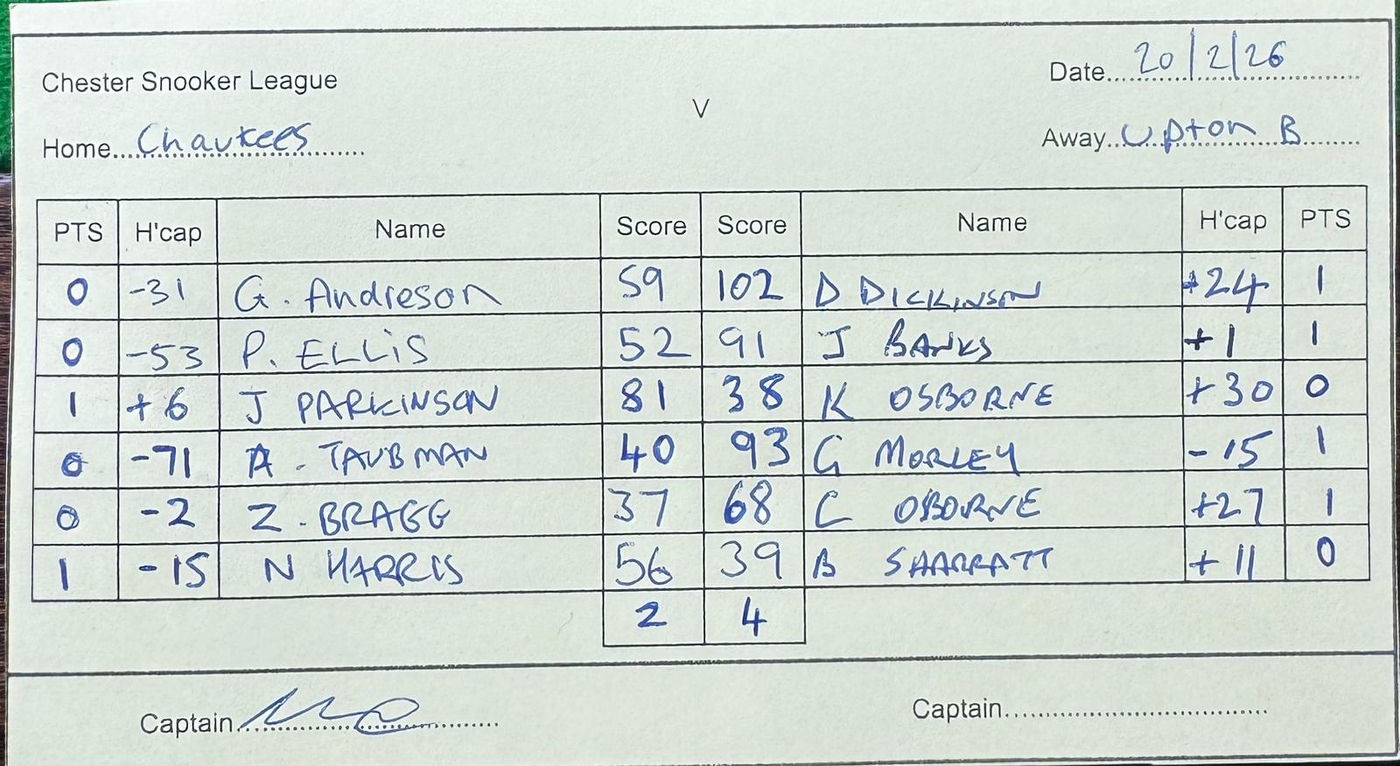 Chester Snooker League
Date 20/2/26
V
Home Chavkees
Away Upton B
PTS H'cap Name Score Score Name H'cap PTS
0 -31 G. Andreson 59 102 D DICKINSON +24 1
0 -53 P. ELLIS 52 91 J BANKS +1 1
1 +6 J PARKINSON 81 38 K OSBORNE +30 0
0 -71 A. TAUBMAN 40 93 G MORLEY -15 1
0 -2 Z. BRAGG 37 68 C OBORNE +27 1
1 -15 N HARRIS 56 39 B SHARRATT +11 0
2 4
Captain
Captain